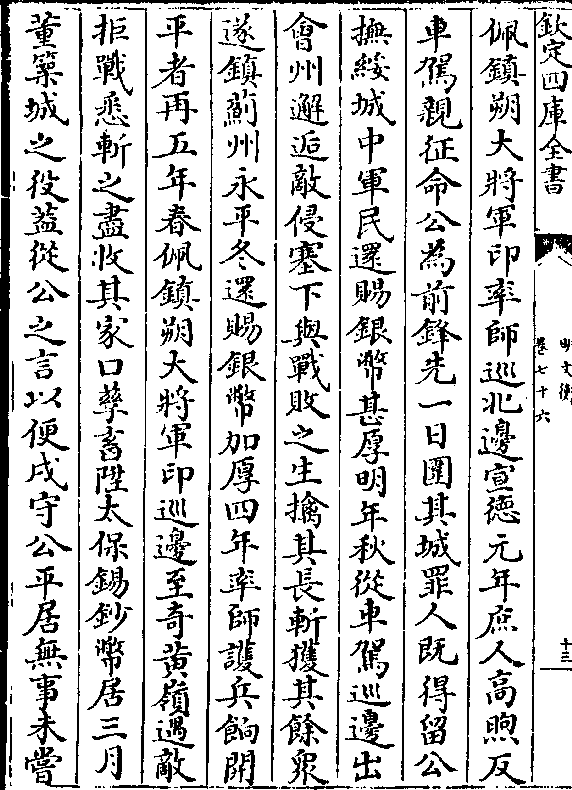 欽定四庫全書
明文衡
卷七十六
十三
佩鎮朔大將軍印率師巡北邊宣德元年庶人高煦反
車駕親征命公為前鋒先一日圍其城罪人既得留公
撫綏城中軍民還賜銀幣甚厚明年秋從車駕巡邊出
會州邂逅敵侵塞下與戰敗之生擒其長斬獲其餘衆
遂鎮薊州永平冬還賜銀幣加厚四年率師護兵餉開
平者再五年春佩鎮朔大將軍印巡邊至奇黄嶺遇敵
拒戰悉斬之盡收其家口孳畜陞太保錫鈔幣居三月
董築城之役葢從公之言以便戍守公平居無事未嘗